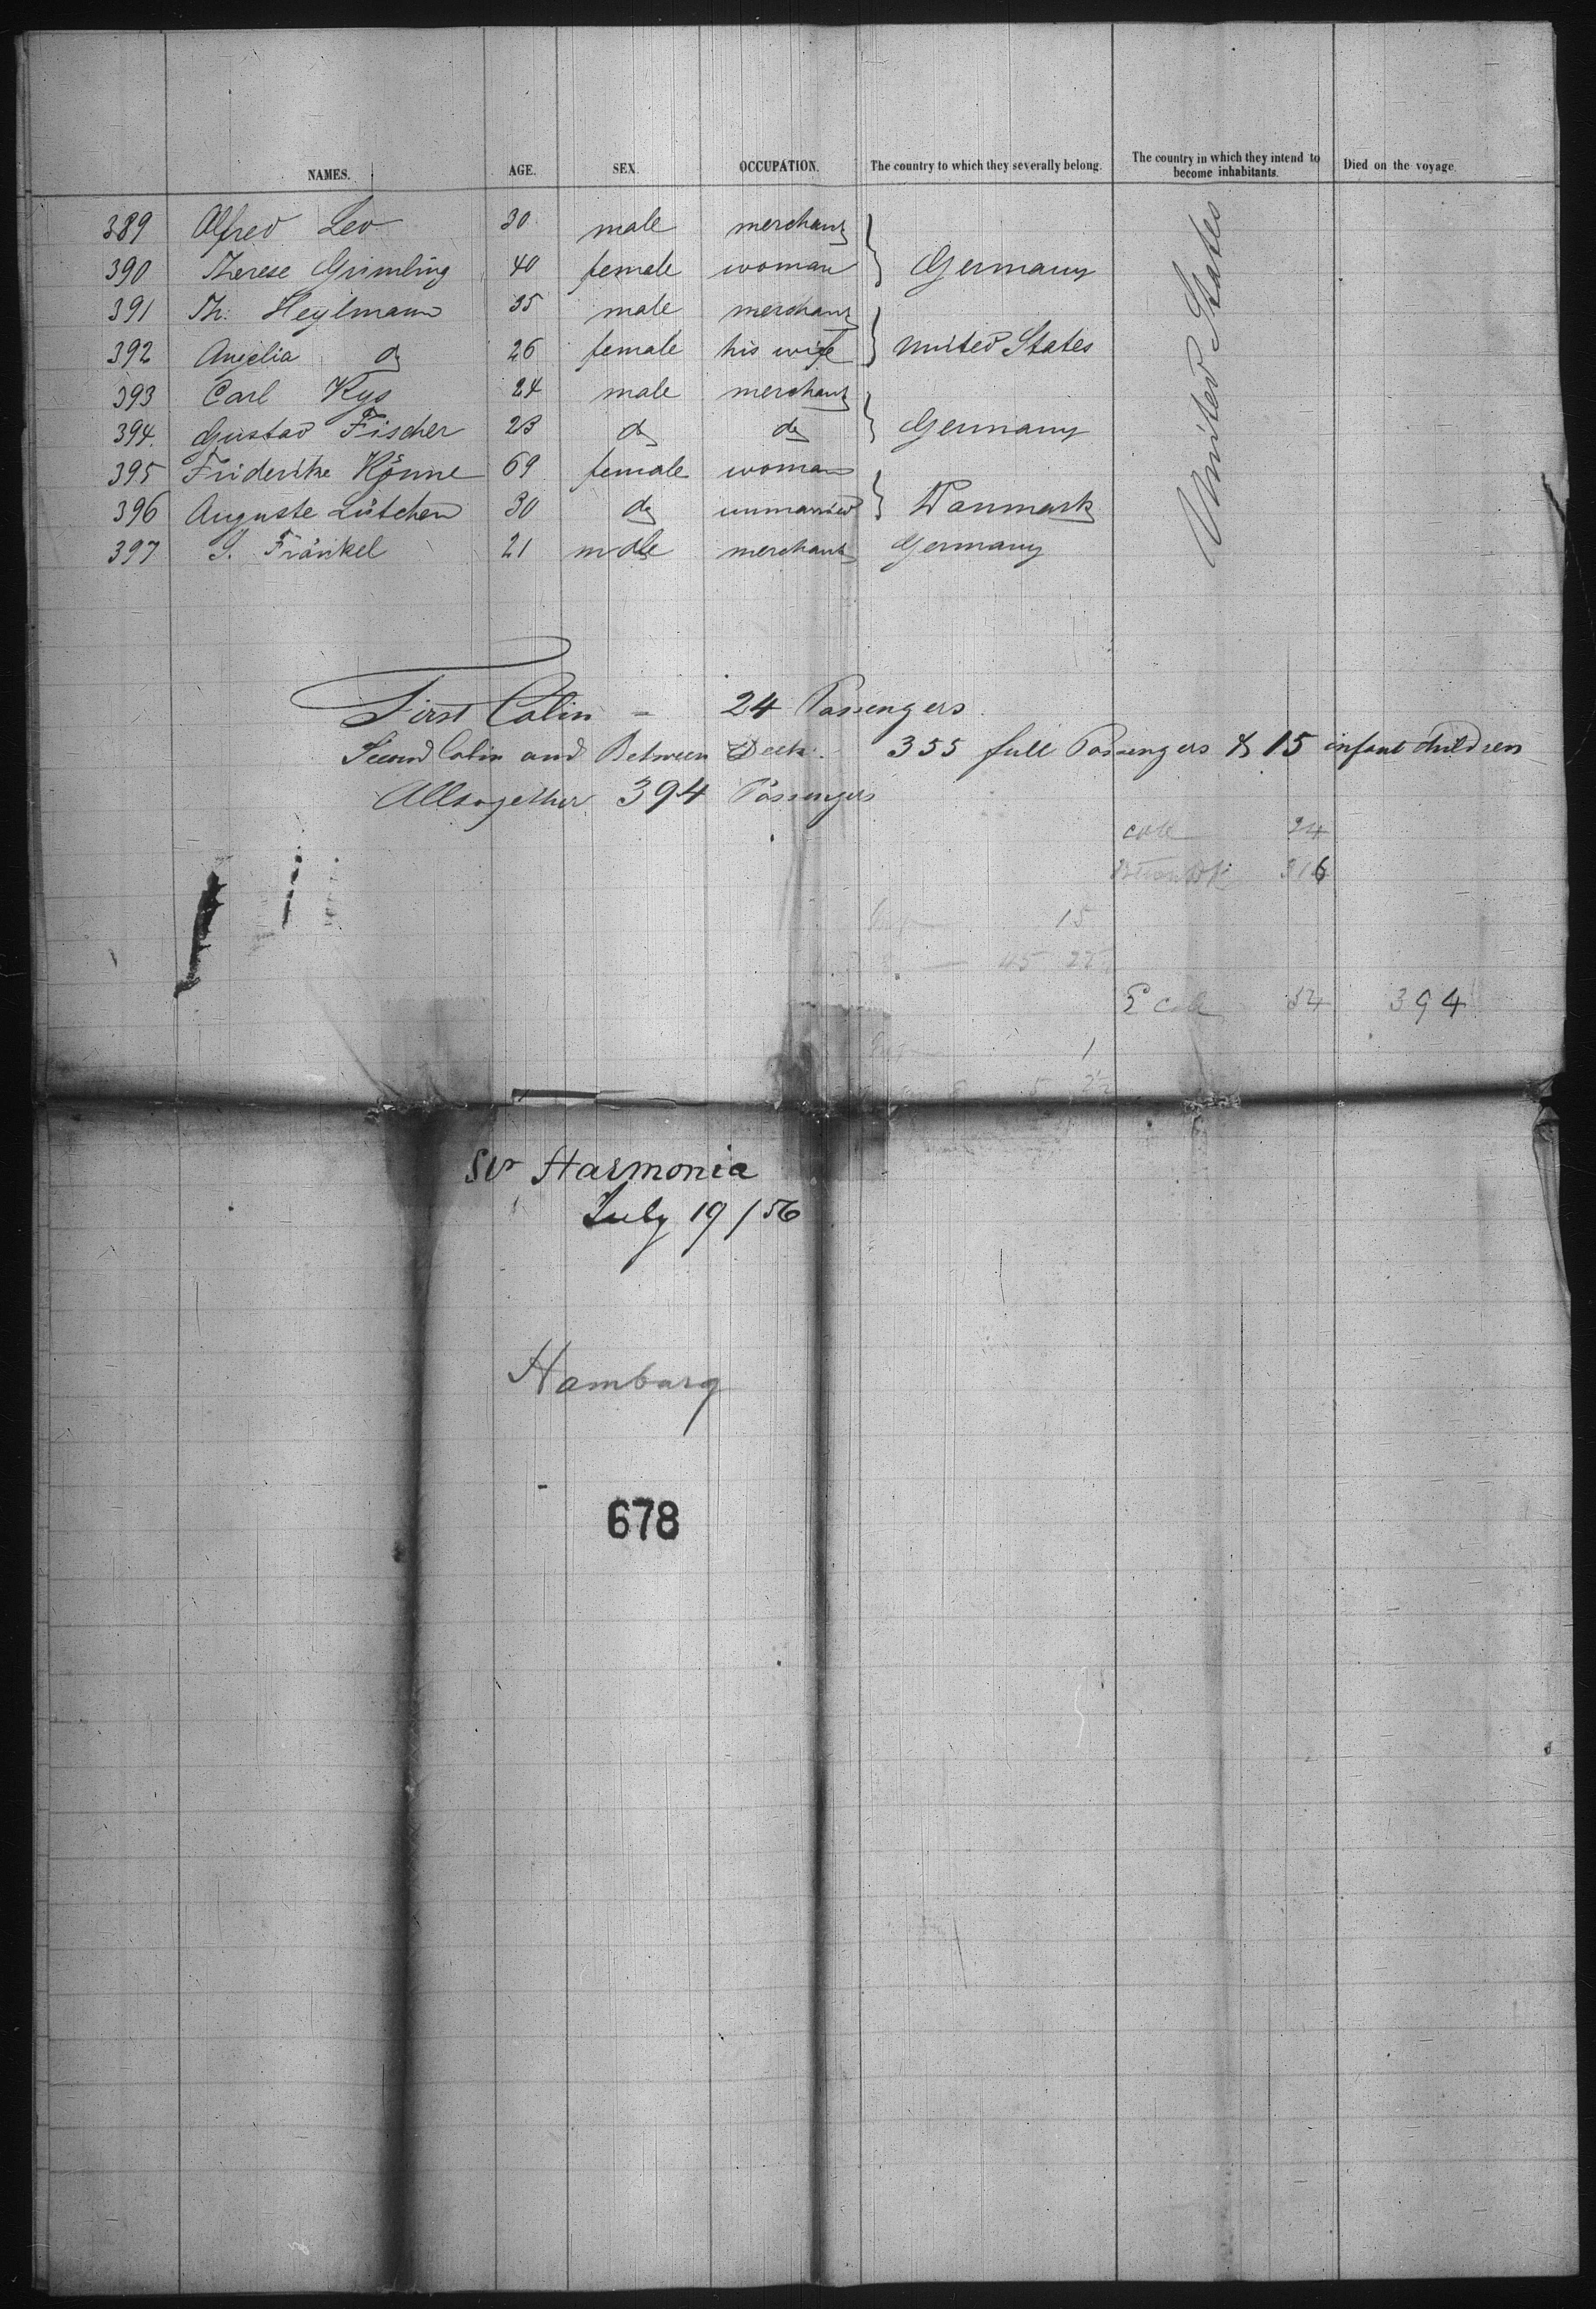 NAMES. AGE. SEX. OCCUPATION. The country to which they severally belong. The country in which they intend to become inhabitants. Died on the voyage.
389 Alfred Leo 30 male merchant
390 Therese Grimling 40 female woman } Germany
391 Th. Heylmann 35 male merchant
392 Angelia do 26 female his wife } United States
393 Carl Kys 24 male merchant
394. Gustav Fischer 23 do do } Germany
395 Friderike Könne 69 female woman
396 Auguste Lütchen 30 do unmarried } Danmark
397 S. Fränkel 21 male merchant Germany
United States
First Cabin - 24 Passengers.
Second Cabin and Between Deck. 355 full Passengers & 15 infant children
Alltogether 394 Passengers
24
316
15
45
54 394
1
Str Harmonia
July 19 / 56
Hamburg
678